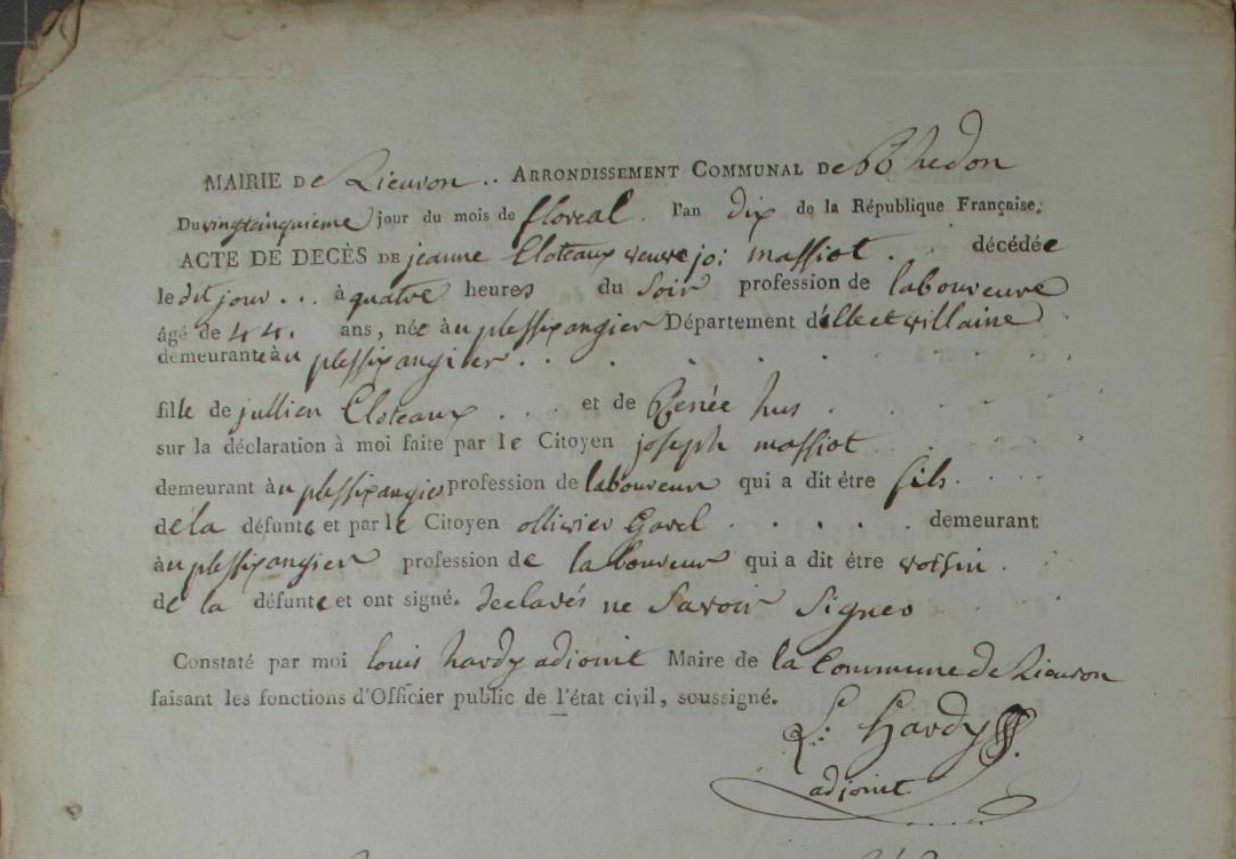 MAIRIE De Lieuron .. ARRONDISSEMENT COMMUNAL De Rhedon
Du vingtcinquieme jour du mois de floreal . l'an dix de la République Française.
ACTE DE DECÈS DE jeanne Cloteaux veuve jo: massiot . décédée
le dit jour . . . à quatre heures du Soir profession de laboureure
âgé de 44. ans, née àu plessixangier Département d'ille et villaine
demeurante àu plessixangier . . . . . . . .
fille de jullien Cloteaux . . . et de Renée hus . . . . . .
sur la déclaration à moi faite par le Citoyen joseph massiot
demeurant àu plessixangier profession de laboureur qui a dit être fils . . . .
de la défunte et par le Citoyen ollivier Gavel . . . . . demeurant
àu plessixangier profession de laboureur qui a dit être voisin .
de la défunte et ont signé. declarés ne Savoir Signer
Constaté par moi louis hardy adjoint Maire de la Commune de Lieuron
faisant les fonctions d'Officier public de l'état civil, soussigné.
L: Hardy
adjoint